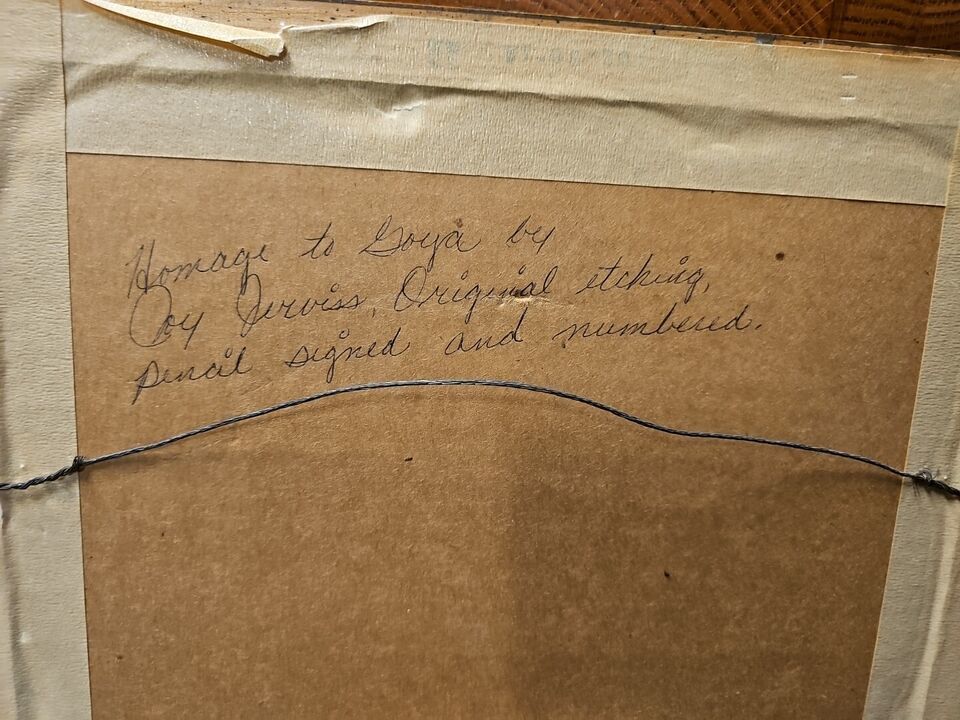 Homage to Goya by
Jerviss, Original etching,
pencil signed and numbered.